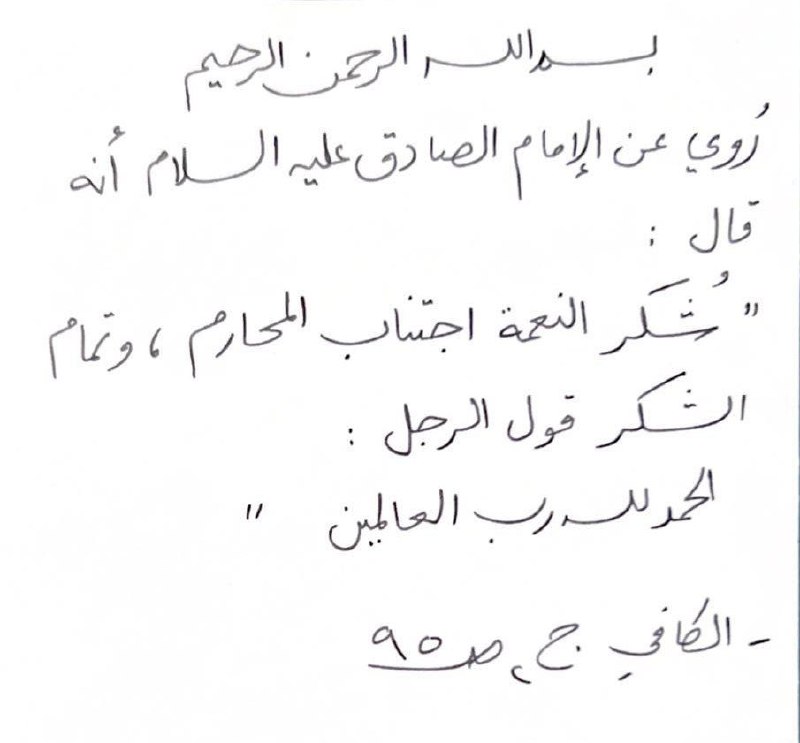 بسم الله الرحمن الرحيم
رُوي عن الإمام الصادق عليه السلام أنه
قال :
" شُكر النعمة اجتناب المحارم ، وتمام
الشكر قول الرجل :
الحمد لله رب العالمين "
- الكافي ج٢ ص٩٥